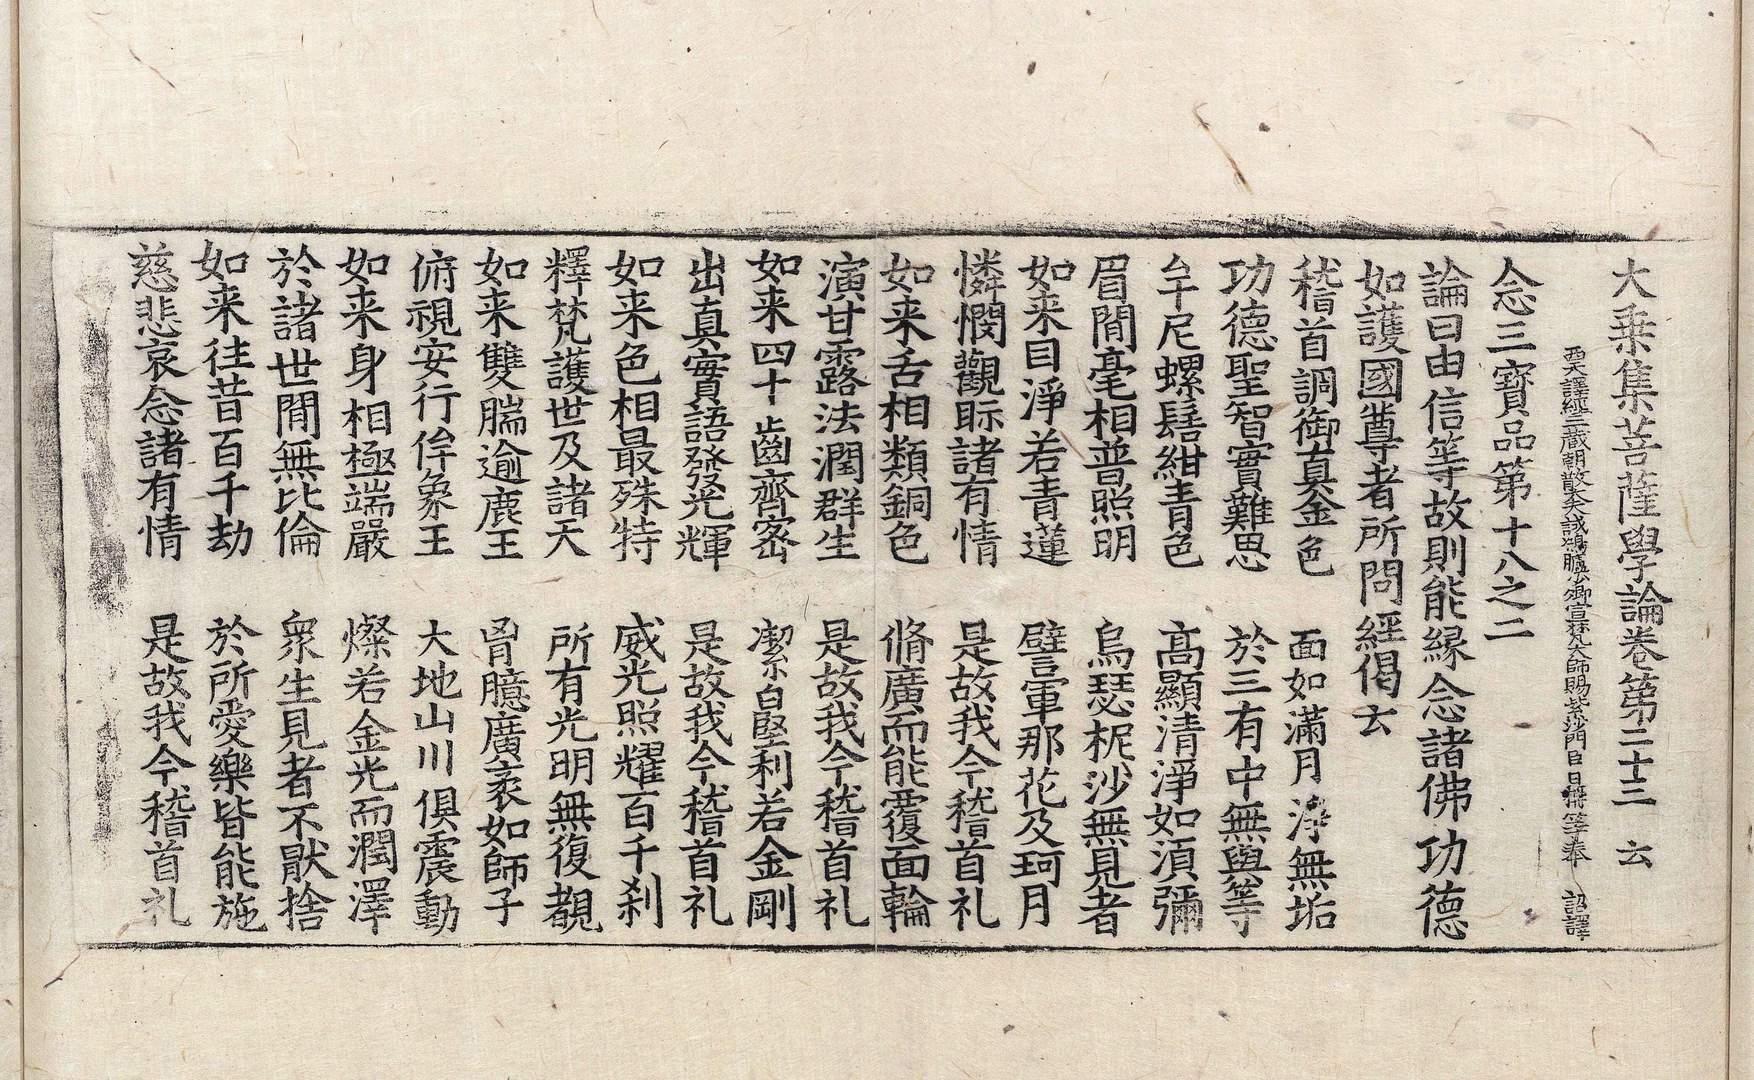 大乗集菩薩學論卷第二十三 云
西天譯經三藏朝散大夫試鴻臚少卿宣梵大師賜紫沙門臣日稱等奉 詔譯
念三寶品第十八之二
論曰由信等故則能緣念諸佛功德
如護國尊者所問經偈云
稽首調御真金色 面如滿月淨無垢
功德聖智實難思 於三有中無與等
牟尼螺髻紺青色 高顯清淨如湏彌
眉間毫相普照明 烏瑟柅沙無見者
如来目淨若青蓮 譬軍那花及珂月
憐愍觀眎諸有情 是故我今稽首礼
如来舌相類銅色 脩廣而能覆面輪
演甘露法潤群生 是故我今稽首礼
如来四十齒齊密 潔白堅利若金剛
出真實語發光輝 是故我今稽首礼
如来色相最殊特 威光照耀百千刹
釋梵護世及諸天 所有光明無復覩
如来雙腨逾鹿王 胷臆廣袤如師子
俯視安行侔象王 大地山川俱震動
如来身相極端嚴 燦若金光而潤澤
於諸世間無比倫 衆生見者不猒捨
如来往昔百千劫 於所愛樂皆能施
慈悲哀念諸有情 是故我今稽首礼